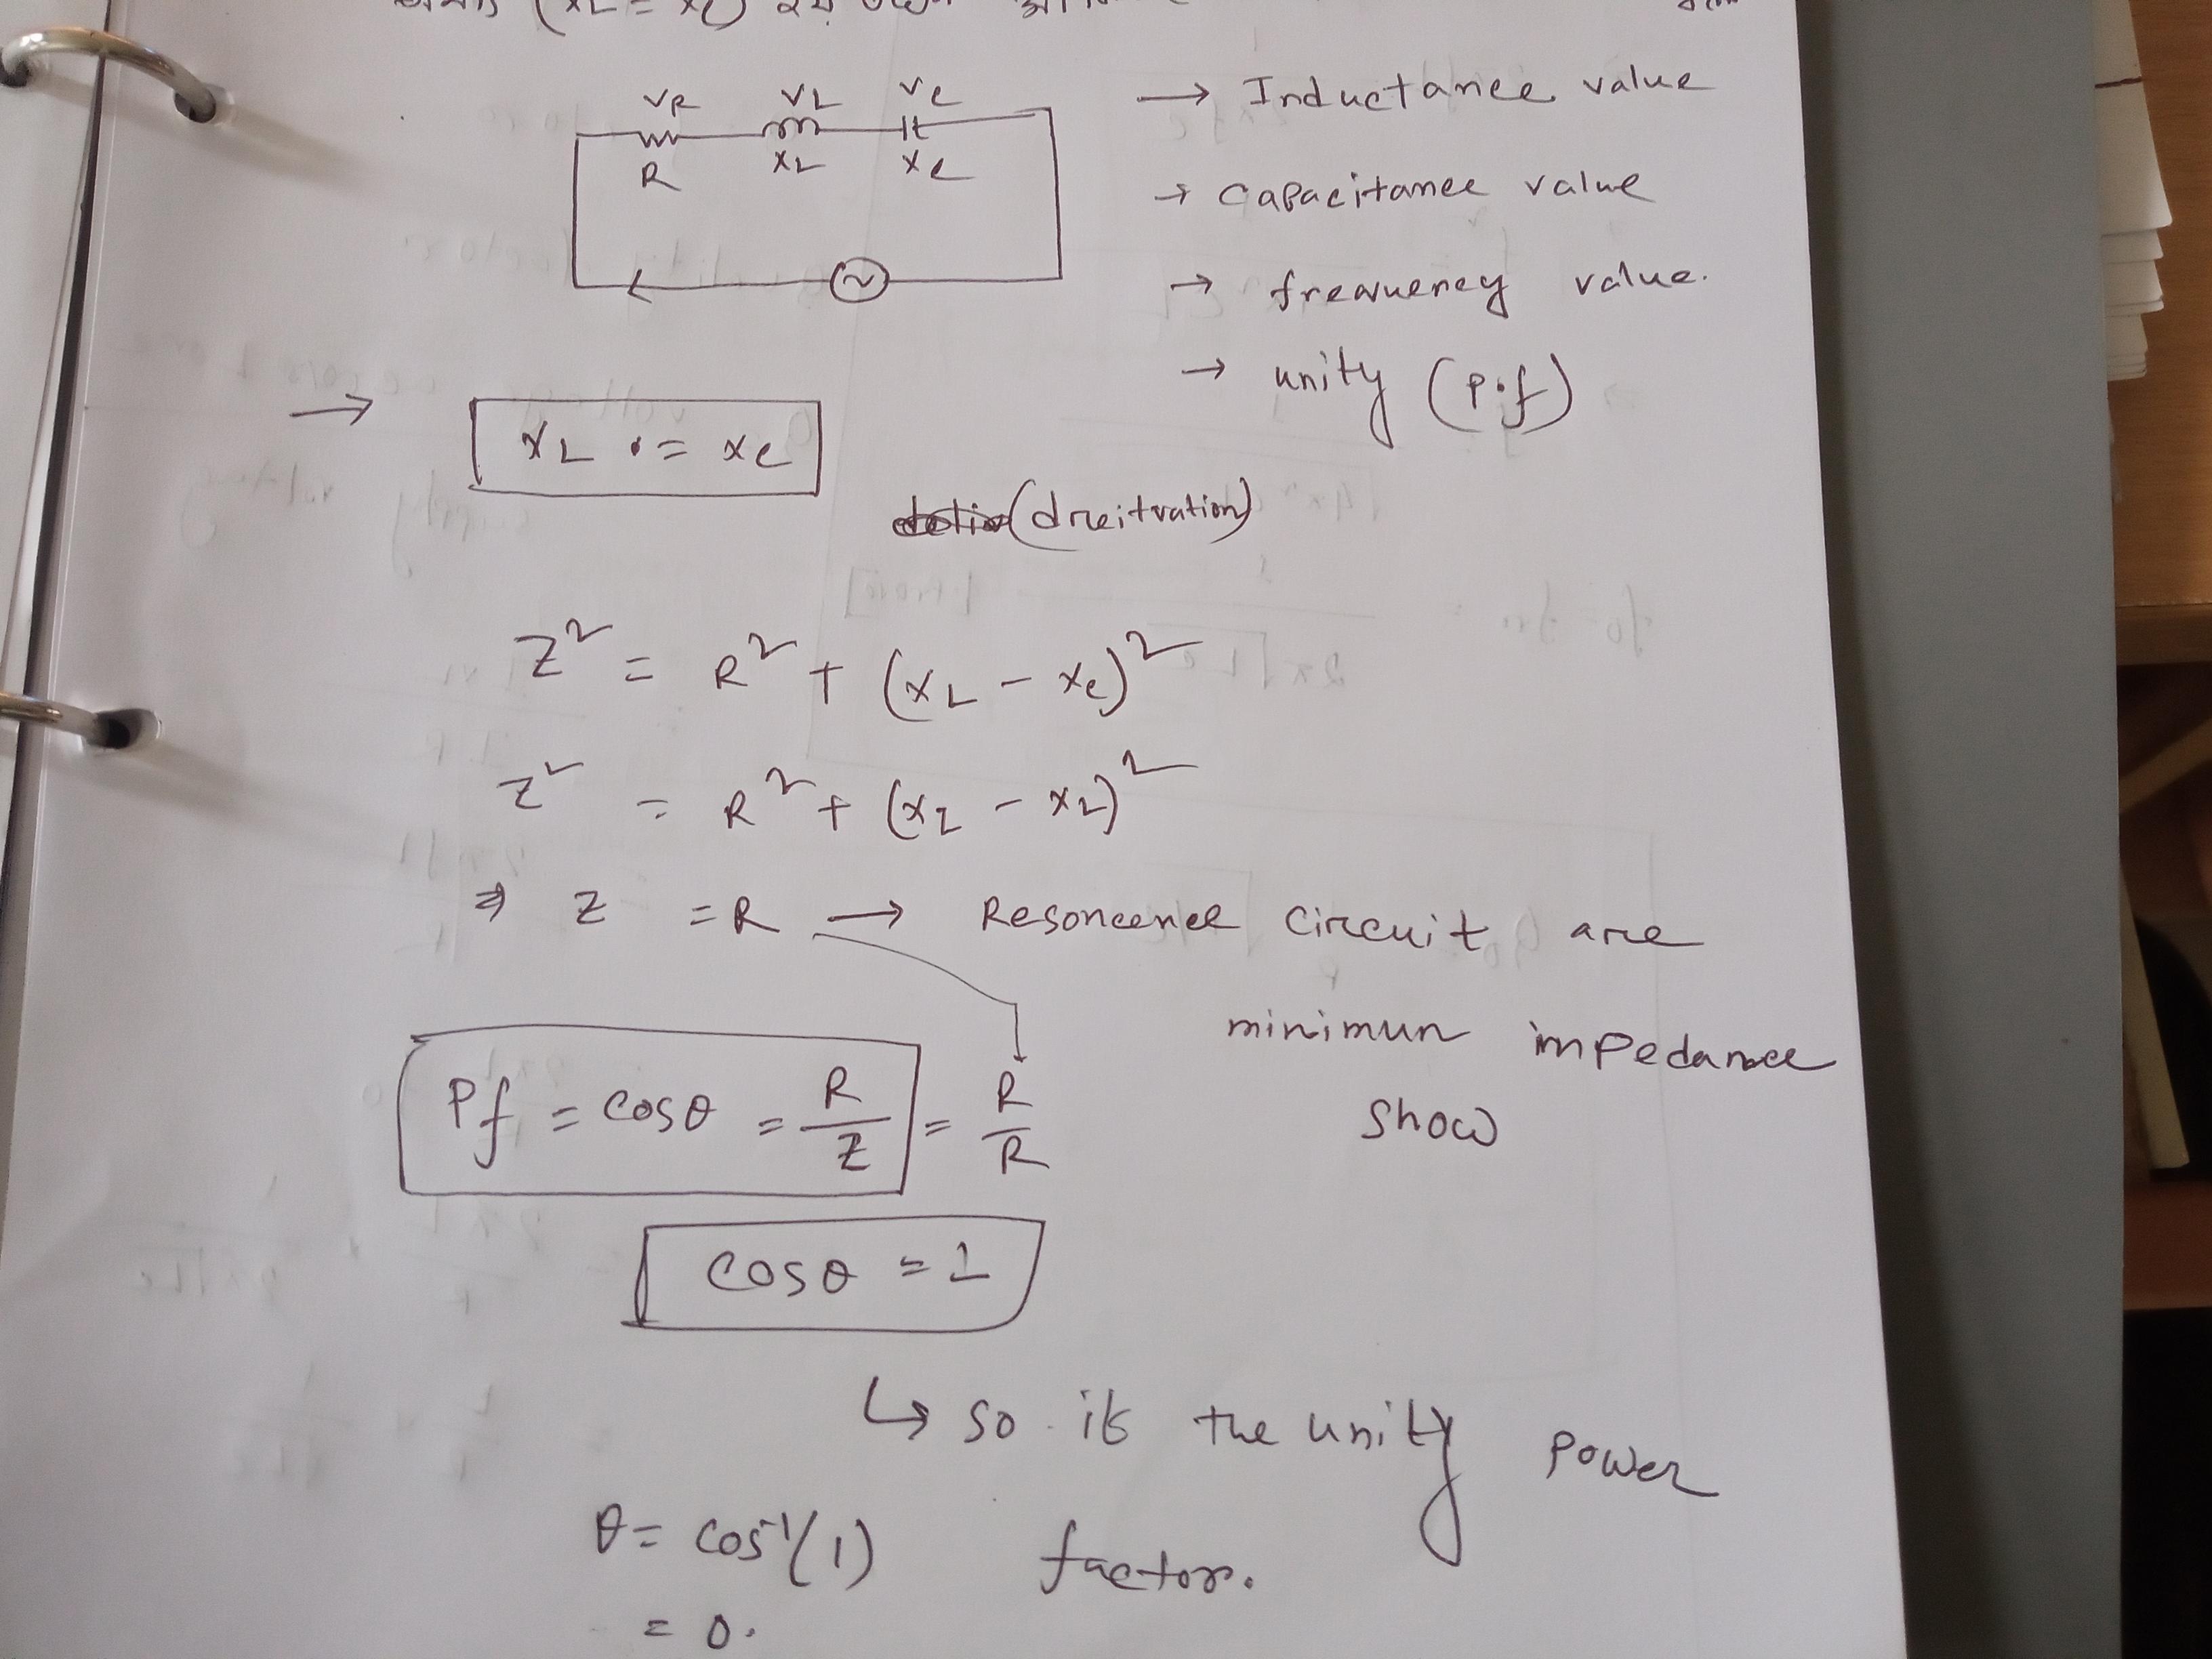 (XL = XC)
VR VL Vc
R XL Xc
→ Inductance value
→ Capacitance value
→ frequency value.
→ unity (P.f)
→ XL = Xc
(dreitvation)
Z² = R² + (XL - Xc)²
Z² = R² + (XL - XL)²
⇒ Z = R → Resoncence Circuit are
minimun impedance
show
Pf = cosθ = R/Z = R/R
cosθ = 1
↳ so it the unity power
factor.
θ = cos⁻¹(1)
= 0.